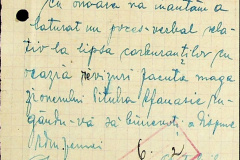 cu onoare vă înaintăm a
laturat un proces-verbal rela
tiv la lipsa carburanților cu
ocazia revizuri facuta maga
zionerului Pituha Afanasie, ru
gându-vă să binevoiți a dispune